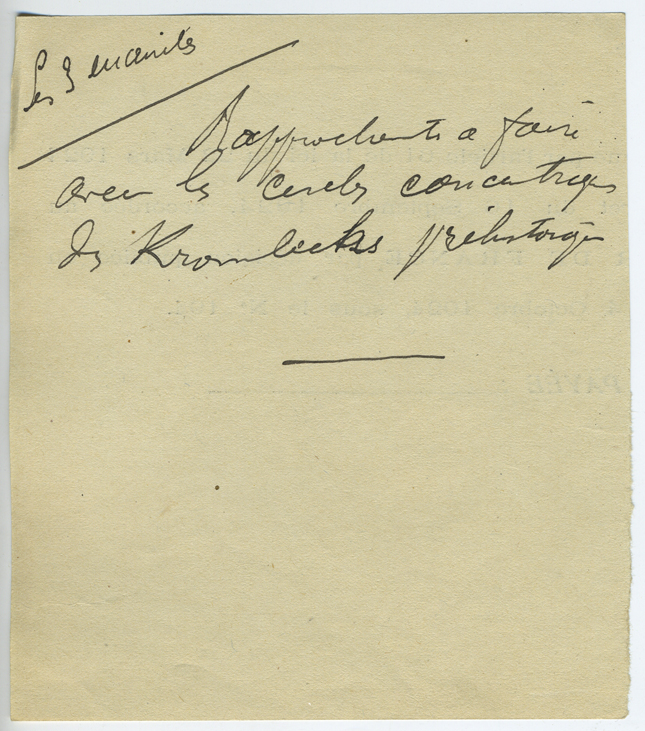 Les 3 enceintes
Rapprochements a faire
avec les cercles concentriques
des Kromlecks préhistoriques